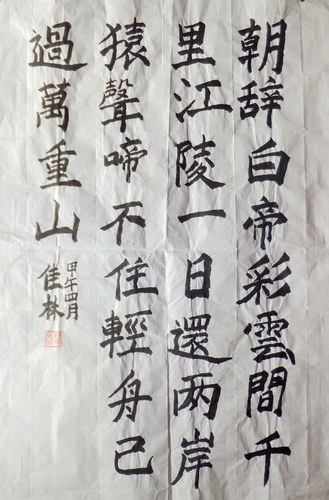 朝辞白帝彩雲間千
里江陵一日還两岸
猿聲啼不住輕舟已
過萬重山
甲午四月
佳林